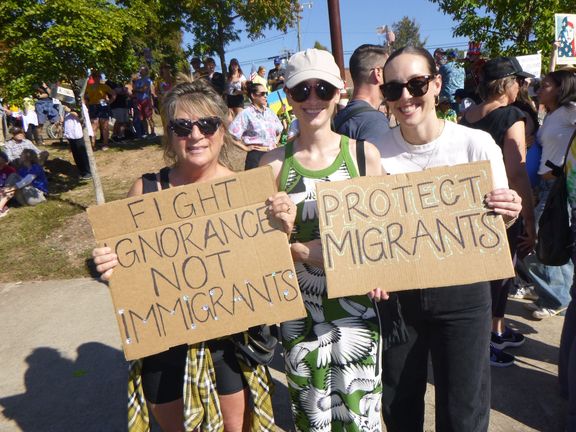 FIGHT
IGNORANCE
NOT
IMMIGRANTS
PROTECT
MIGRANTS